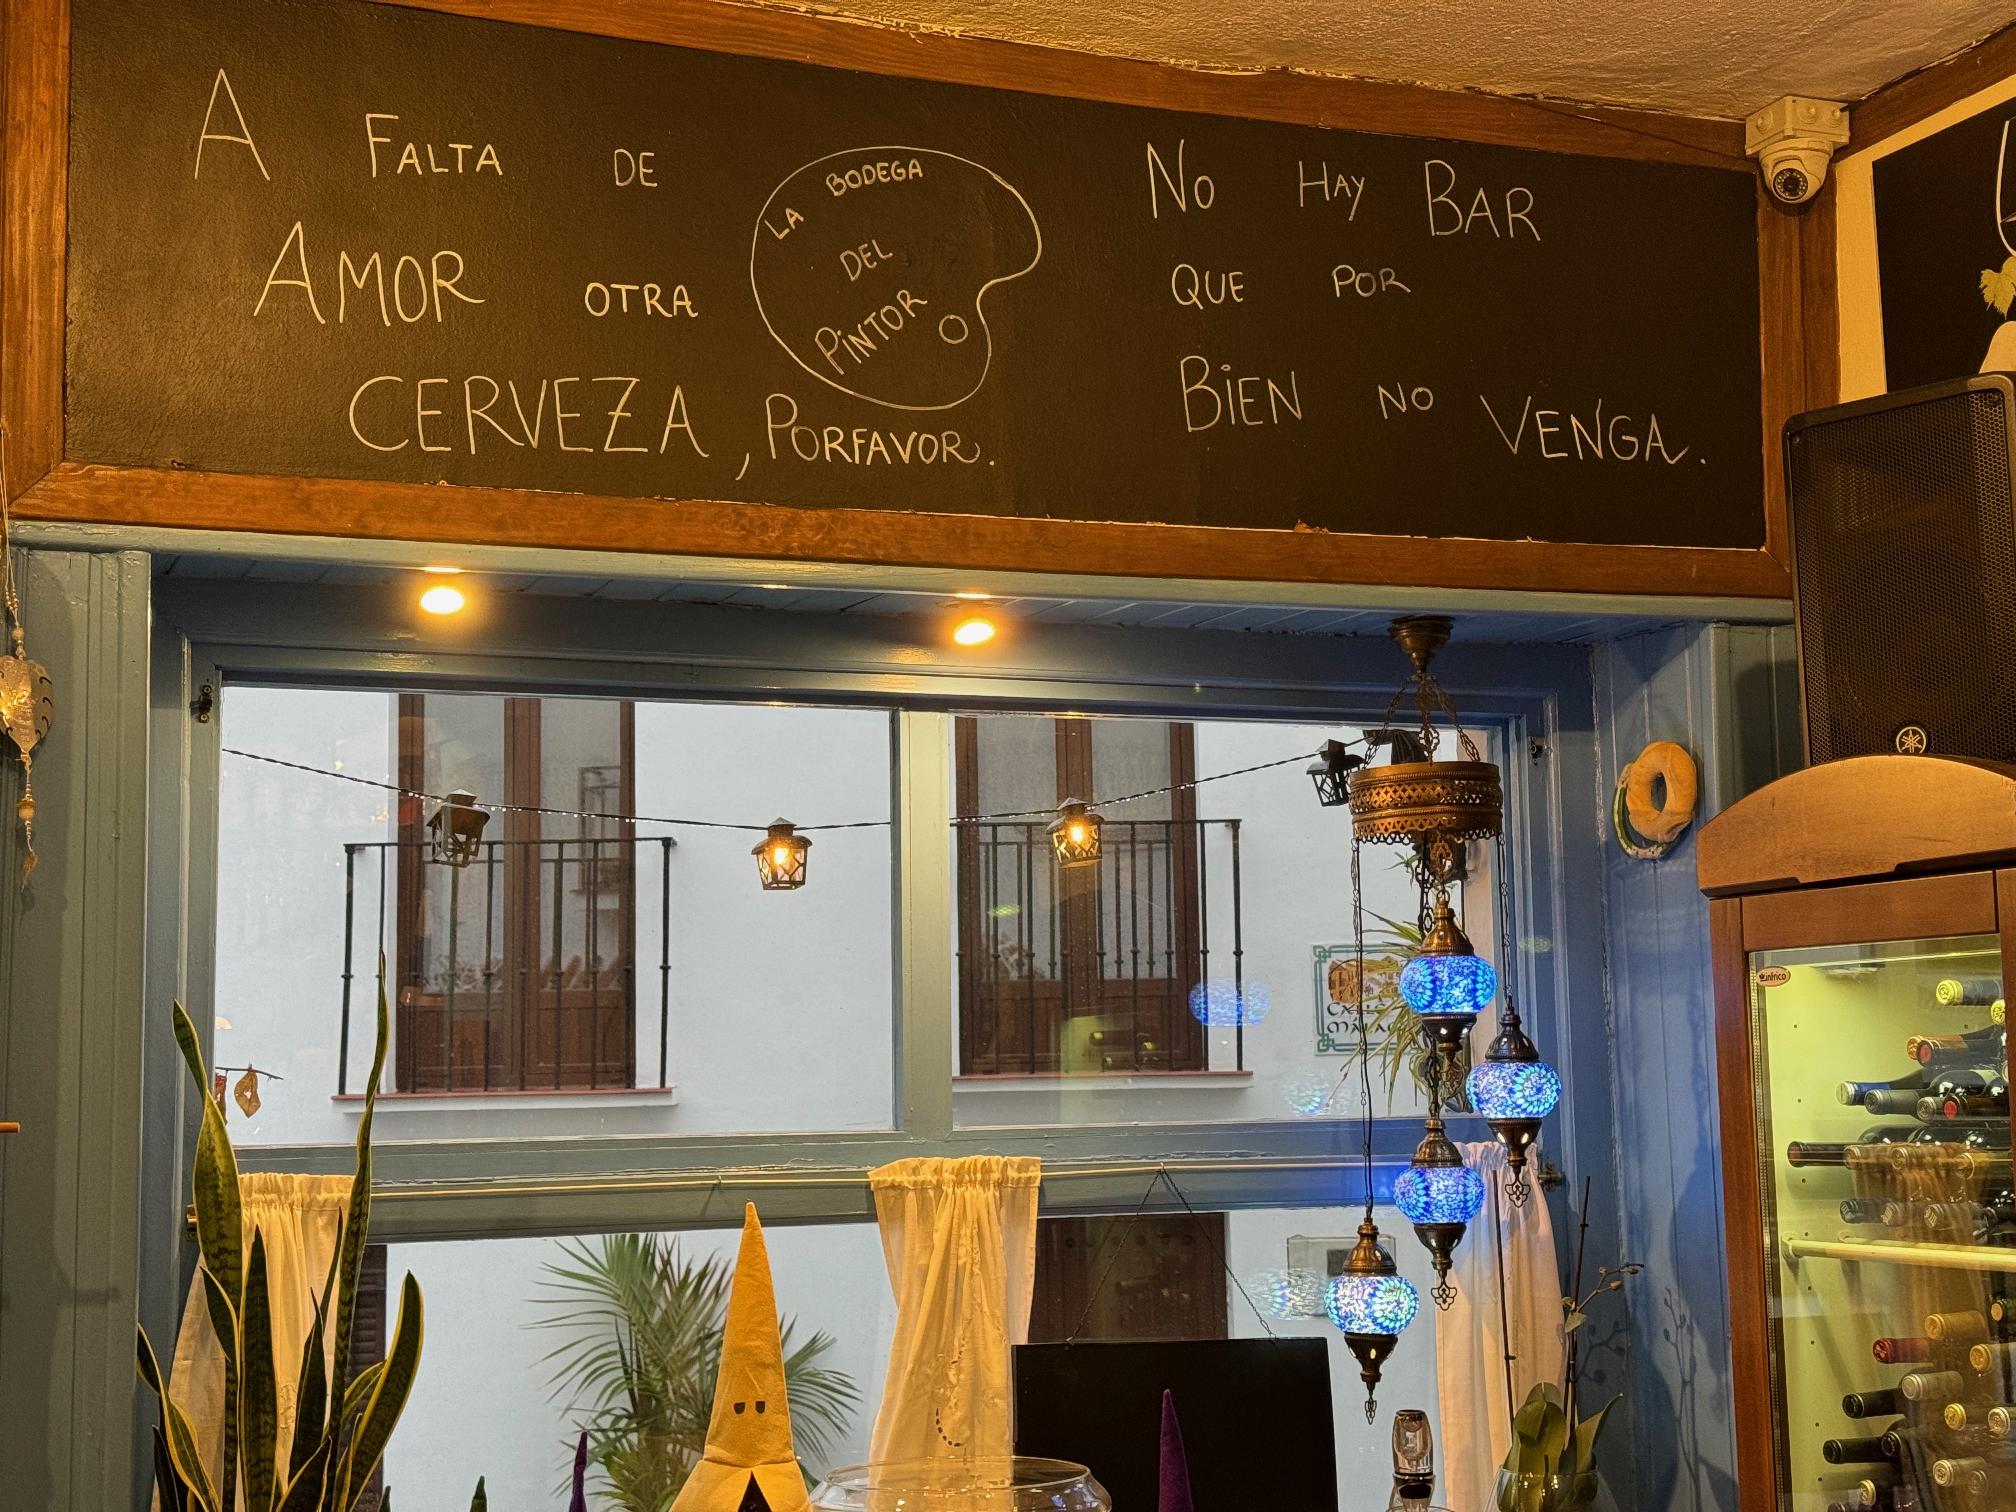 A FALTA DE
AMOR OTRA
CERVEZA, PORFAVOR.
LA BODEGA
DEL
PINTOR
NO HAY BAR
QUE POR
BIEN NO VENGA.
infrico